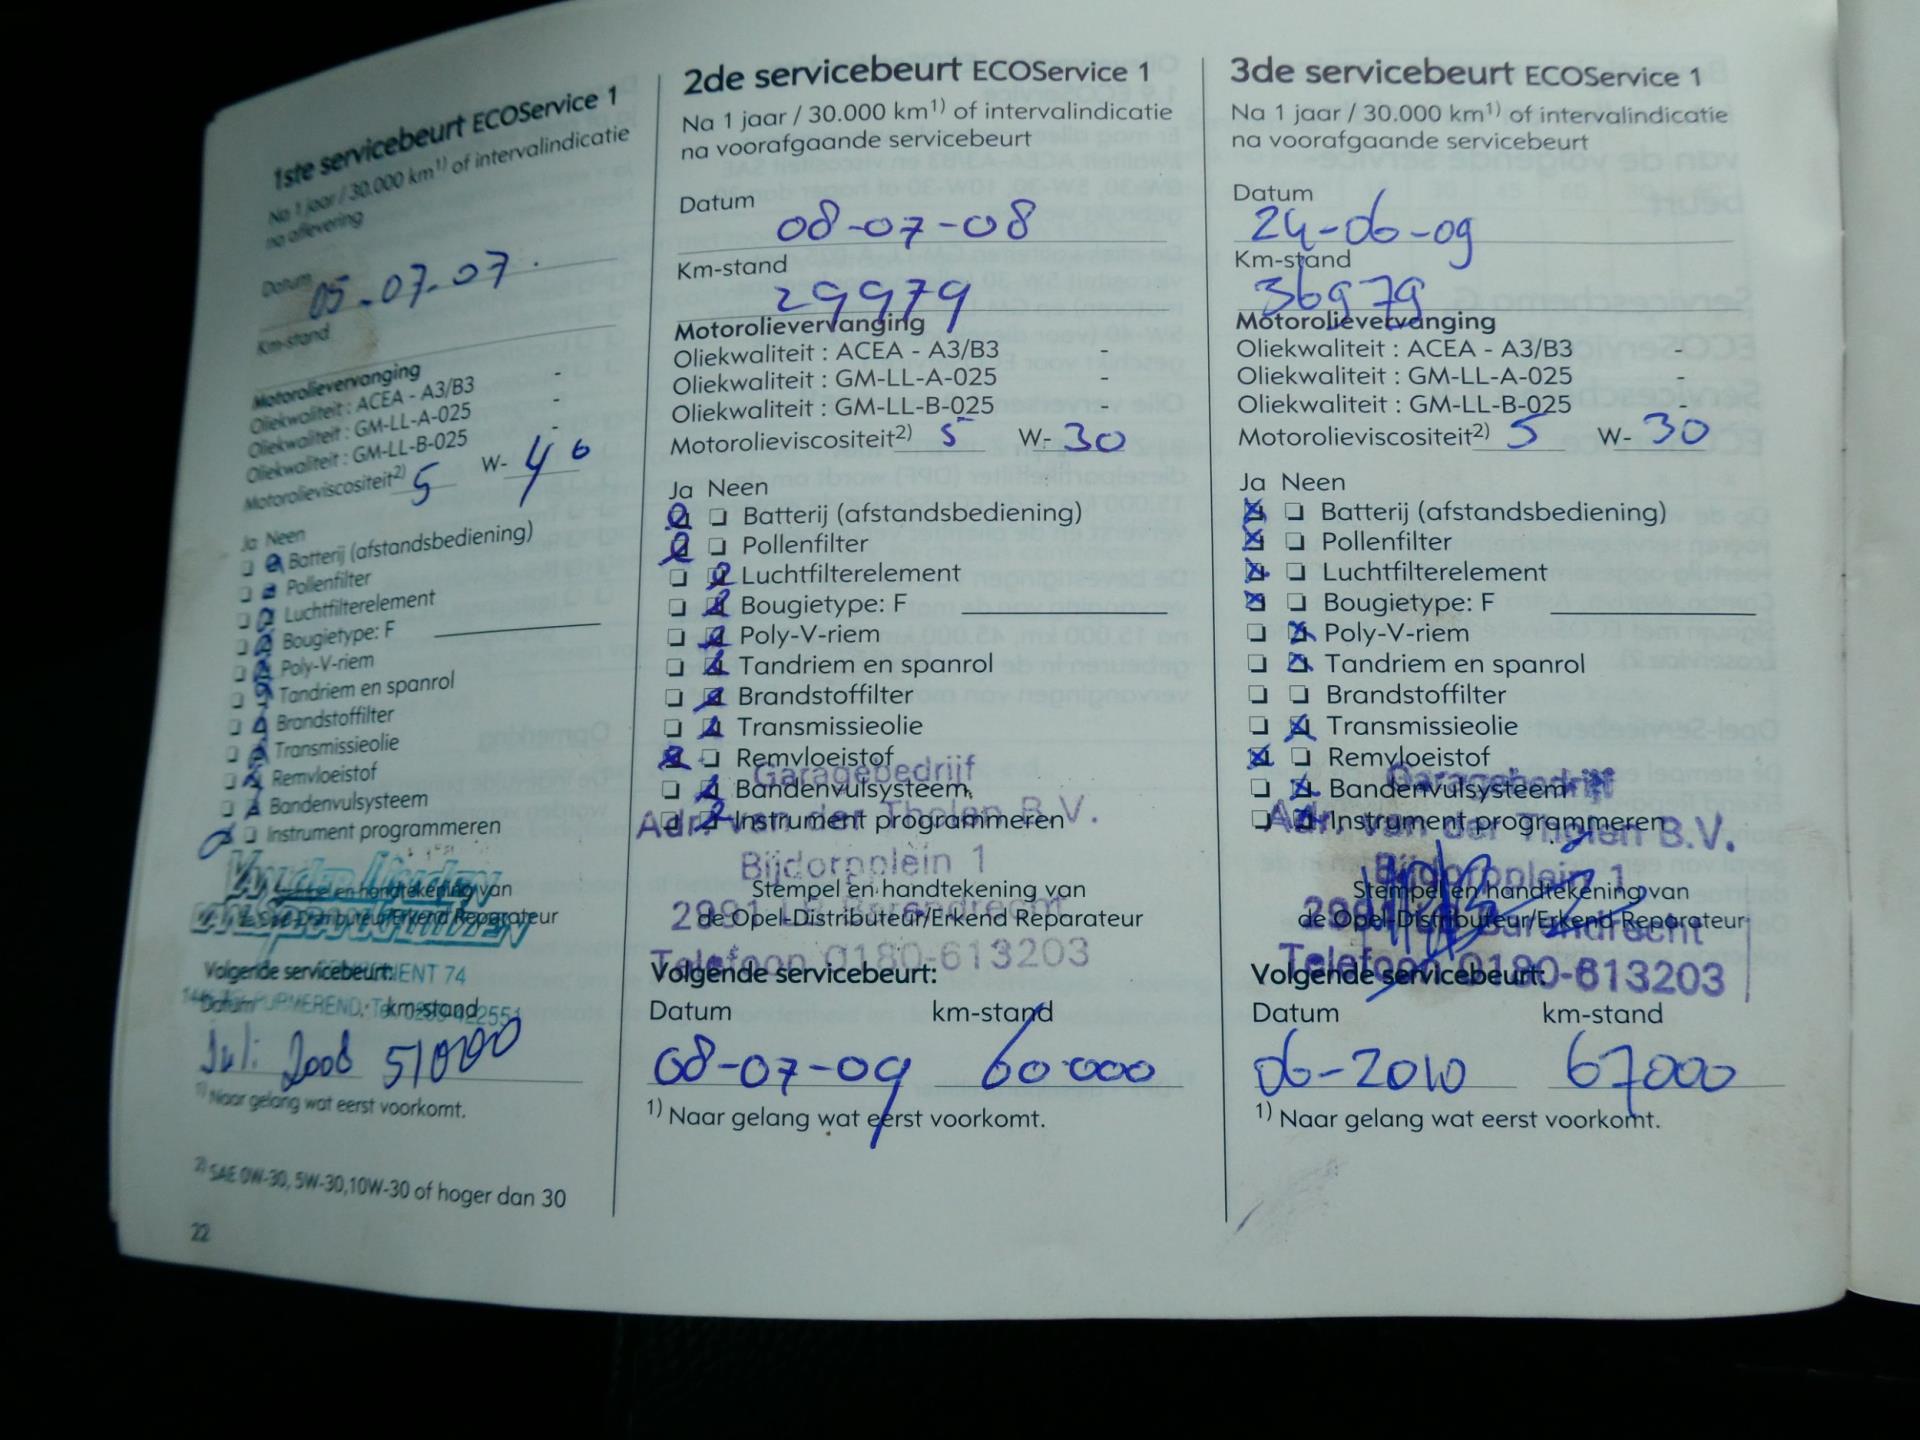 1ste servicebeurt ECOService 1
Na 1 jaar / 30.000 km1) of intervalindicatie
na aflevering
Datum
05-07-07.
Km-stand
Motorolievervanging
Oliekwaliteit : ACEA - A3/B3 -
Oliekwaliteit : GM-LL-A-025 -
Oliekwaliteit : GM-LL-B-025 -
Motorolieviscositeit2) 5 W- 40
Ja Neen
Batterij (afstandsbediening)
Pollenfilter
Luchtfilterelement
Bougietype: F
Poly-V-riem
Tandriem en spanrol
Brandstoffilter
Transmissieolie
Remvloeistof
Bandenvulsysteem
Instrument programmeren
Van der Linden
Stempel en handtekening van
de Opel-Distributeur/Erkend Reparateur
Volgende servicebeurt:
Datum km-stand
PURMEREND
Juli 2008 51000
1) Naar gelang wat eerst voorkomt.
2) SAE 0W-30, 5W-30,10W-30 of hoger dan 30
22
2de servicebeurt ECOService 1
Na 1 jaar / 30.000 km1) of intervalindicatie
na voorafgaande servicebeurt
Datum
08-07-08
Km-stand
29979
Motorolievervanging
Oliekwaliteit : ACEA - A3/B3 -
Oliekwaliteit : GM-LL-A-025 -
Oliekwaliteit : GM-LL-B-025 -
Motorolieviscositeit2) 5 W- 30
Ja Neen
Batterij (afstandsbediening)
Pollenfilter
Luchtfilterelement
Bougietype: F
Poly-V-riem
Tandriem en spanrol
Brandstoffilter
Transmissieolie
Remvloeistof
Garagebedrijf
Bandenvulsysteem
Adr. van der Tholen B.V.
Instrument programmeren
Bijdorpplein 1
Stempel en handtekening van
2991 LB Barendrecht
de Opel-Distributeur/Erkend Reparateur
Telefoon 0180-613203
Volgende servicebeurt:
Datum km-stand
08-07-09 60.000
1) Naar gelang wat eerst voorkomt.
3de servicebeurt ECOService 1
Na 1 jaar / 30.000 km1) of intervalindicatie
na voorafgaande servicebeurt
Datum
24-06-09
Km-stand
36979
Motorolievervanging
Oliekwaliteit : ACEA - A3/B3 -
Oliekwaliteit : GM-LL-A-025 -
Oliekwaliteit : GM-LL-B-025 -
Motorolieviscositeit2) 5 W- 30
Ja Neen
Batterij (afstandsbediening)
Pollenfilter
Luchtfilterelement
Bougietype: F
Poly-V-riem
Tandriem en spanrol
Brandstoffilter
Transmissieolie
Remvloeistof
Garagebedrijf
Bandenvulsysteem
Adr. van der Tholen B.V.
Instrument programmeren
Bijdorpplein 1
Stempel en handtekening van
Barendrecht
de Opel-Distributeur/Erkend Reparateur
Telefoon 0180-613203
Volgende servicebeurt:
Datum km-stand
06-2010 67000
1) Naar gelang wat eerst voorkomt.